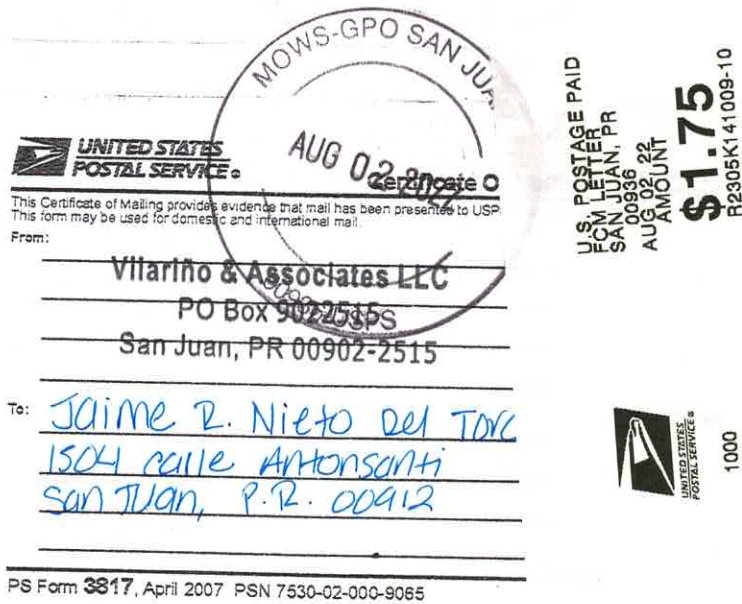 MOWS-GPO SAN JUA
AUG 02 2022
00936 USPS
UNITED STATES
POSTAL SERVICE®
Certificate O
This Certificate of Mailing provides evidence that mail has been presented to USP
This form may be used for domestic and international mail.
From:
Vilariño & Associates LLC
PO Box 9022515
San Juan, PR 00902-2515
To: Jaime R. Nieto Del Toro
1504 calle Antonsanti
San Juan, P.R. 00912
PS Form 3817, April 2007 PSN 7530-02-000-9065
U.S. POSTAGE PAID
FCM LETTER
SAN JUAN, PR
00936
AUG 02 22
AMOUNT
$1.75
R2305K141009-10
UNITED STATES
POSTAL SERVICE®
1000